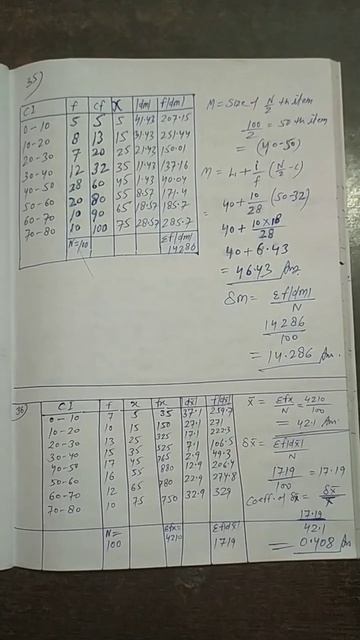 35)
CI f cf x |dm| f|dm|
0-10 5 5 5 41.43 207.15
10-20 8 13 15 31.43 251.44
20-30 7 20 25 21.43 150.01
30-40 12 32 35 11.43 137.16
40-50 28 60 45 1.43 40.04
50-60 20 80 55 8.57 171.4
60-70 10 90 65 18.57 185.7
70-80 10 100 75 28.57 285.7
N=100 Σf|dm|
14286
M = Size of N/2 th item
100/2 = 50th item
= (40-50)
M = L1 + i/f (N/2 - c)
= 40 + 10/28 (50-32)
40 + 10×18/28
40 + 6.43
= 46.43 Ans
δm = Σf|dm|/N
14286/100
= 14.286 Ans.
36)
CI f x fx |dx̄| f|dx̄|
0-10 7 5 35 37.1 259.7
10-20 10 15 150 27.1 271
20-30 13 25 325 17.1 222.3
30-40 15 35 525 7.1 106.5
40-50 17 45 765 2.9 49.3
50-60 16 55 880 12.9 206.4
60-70 12 65 780 22.9 274.8
70-80 10 75 750 32.9 329
N=100 Σfx=4210 Σf|dx̄| 1719
x̄ = Σfx/N = 4210/100
= 42.1 Ans.
δx̄ = Σf|dx̄|/N
1719/100 = 17.19
Coeff. of δx̄ = δx̄/x̄
17.19/42.1
= 0.408 Ans